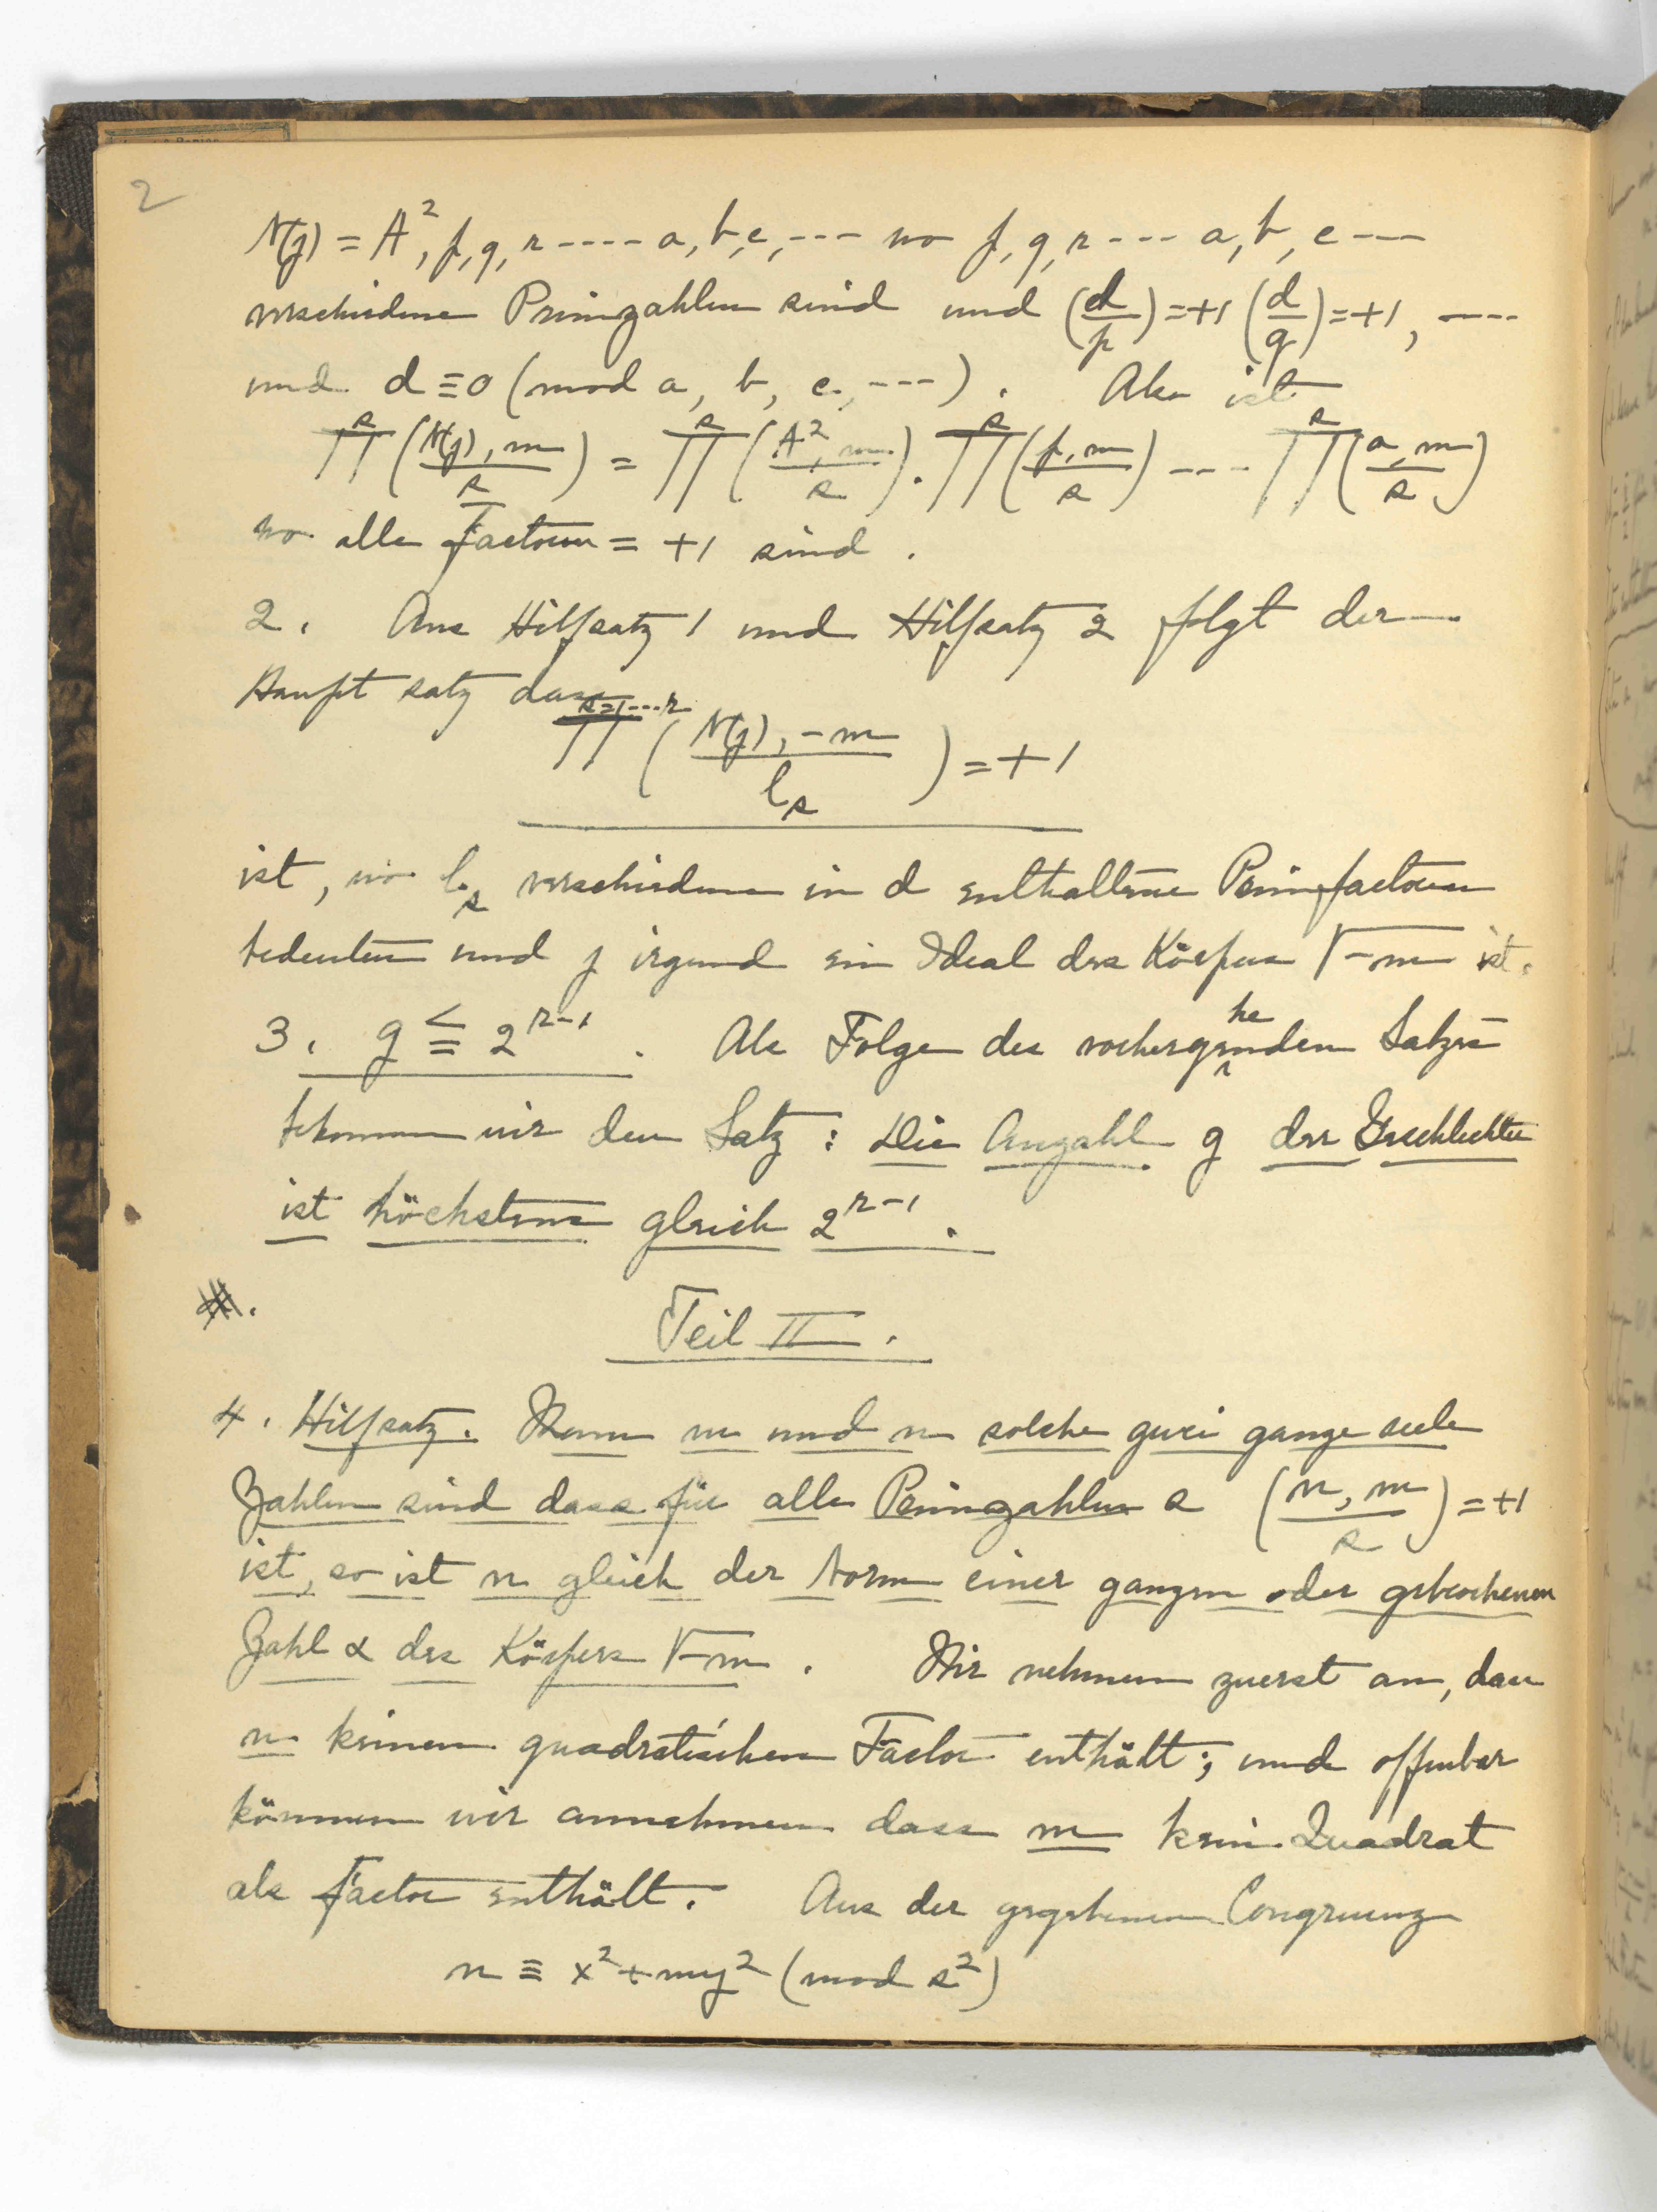 2
N(j) = A², p, q, r ---- a, b, c, --- wo p, q, r --- a, b, c ---
verschiedene Primzahlen sind und (d/p) = +1 (d/q) = +1, ----
und d ≡ 0 (mod a, b, c, ---). Also ist
∏^s (N(j), m / s) = ∏^s (A², m / s) . ∏^s (p, m / s) --- ∏^s (a, m / s)
wo alle Factoren = +1 sind.
2. Aus Hilfsatz 1 und Hilfsatz 2 folgt der
Haupt satz dass
∏^{s=1,...r} (N(j), -m / l_s) = +1
ist, wo l_s verschiedene in d enthaltene Primfactoren
bedeuten und j irgend ein Ideal des Körpers √-m ist.
3. g ≦ 2^{r-1}. Als Folge des vorhergehenden Satzes
bekommen wir den Satz: Die Anzahl g der Geschlechter
ist höchstens gleich 2^{r-1}.
Teil II.
4. Hilfsatz. Wenn m und n solche zwei ganze reele
Zahlen sind dass für alle Primzahlen s (n, m / s) = +1
ist, so ist n gleich der Norm einer ganzen oder gebrochenen
Zahl α des Körpers √-m. Wir nehmen zuerst an, dass
n keinen quadratischen Factor enthält; und offenbar
können wir annehmen dass m kein Quadrat
als Factor enthält. Aus der gegebenen Congruenz
n ≡ x² + my² (mod s²)